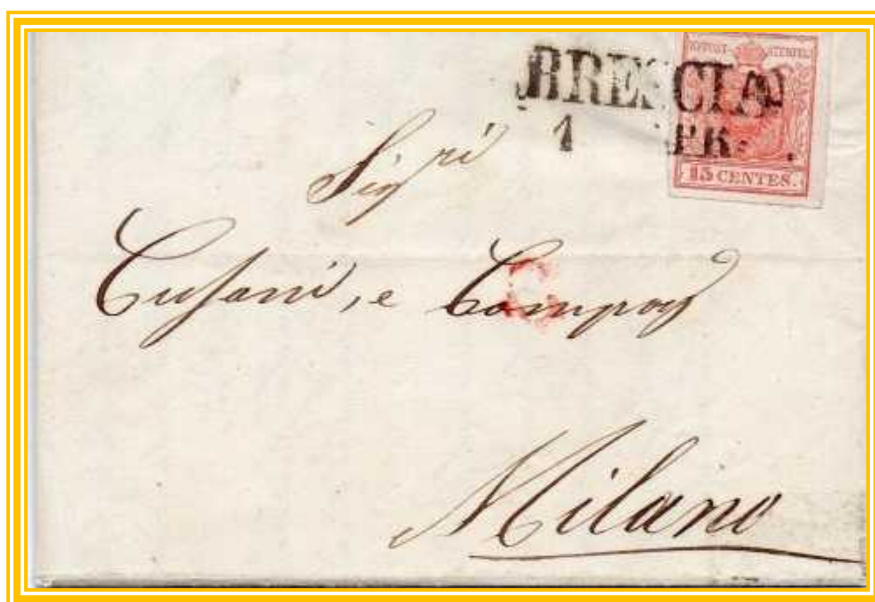 BRESCIA
1 APR.
15 CENTES.
Sigri
Cusani, e Compag
Milano